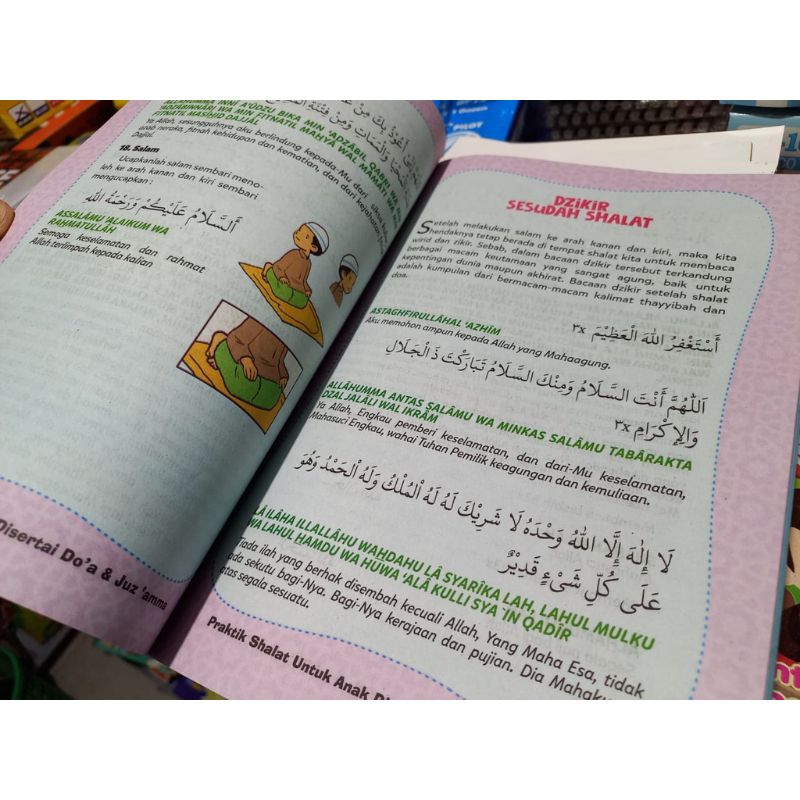 ALLÂHUMMA INNI A'ÛDZU BIKA MIN 'ADZÂBIL QABRI WA MIN
'ADZÂBINNÂRI WA MIN FITNATIL MAHYÂ WAL MAMÂTI WA MIN
FITNATIL MASÎHID DAJJÂL
Ya Allah, sesungguhnya aku berlindung kepada Mu dari siksa kubur,
arab neraka, fitnah kehidupan dan kematian, dan dari kejahatan fitnah
Dajjal.
18. Salam
Ucapkanlah salam sembari meno-
leh ke arah kanan dan kiri sembari
mengucapkan :
اَلسَّلَامُ عَلَيْكُمْ وَرَحْمَةُ اللّٰهِ
ASSALÂMU 'ALAIKUM WA
RAHMATULLÂH
Semoga keselamatan dan rahmat
Allah terlimpah kepada kalian
Disertai Do'a & Juz 'amma
DZIKIR
SESUDAH SHALAT
Setelah melakukan salam ke arah kanan dan kiri, maka kita
hendaknya tetap berada di tempat shalat kita untuk membaca
wirid dan zikir. Sebab, dalam bacaan dzikir tersebut terkandung
berbagai macam keutamaan yang sangat agung, baik untuk
kepentingan dunia maupun akhirat. Bacaan dzikir setelah shalat
adalah kumpulan dari bermacam-macam kalimat thayyibah dan
doa.
أَسْتَغْفِرُ اللهَ الْعَظِيْمَ ٣x
ASTAGHFIRULLÂHAL 'AZHÎM
Aku memohon ampun kepada Allah yang Mahaagung.
اَللّٰهُمَّ أَنْتَ السَّلَامُ وَمِنْكَ السَّلَامُ تَبَارَكْتَ ذَ الْجَلَالِ
وَالْإِكْرَامِ ٣x
ALLÂHUMMA ANTAS SALÂMU WA MINKAS SALÂMU TABÂRAKTA
DZAL JALÂLI WAL IKRÂM
Ya Allah, Engkau pemberi keselamatan, dan dari-Mu keselamatan,
Mahasuci Engkau, wahai Tuhan Pemilik keagungan dan kemuliaan.
لَا إِلٰهَ إِلَّا اللهُ وَحْدَهُ لَا شَرِيْكَ لَهُ لَهُ الْمُلْكُ وَلَهُ الْحَمْدُ وَهُوَ
عَلَى كُلِّ شَيْءٍ قَدِيْرٌ
LÂ ILÂHA ILLALLÂHU WAHDAHU LÂ SYARÎKA LAH, LAHUL MULKU
WA LAHUL HAMDU WA HUWA 'ALÂ KULLI SYA 'IN QADÎR
Tiada ilah yang berhak disembah kecuali Allah, Yang Maha Esa, tidak
ada sekutu bagi-Nya. Bagi-Nya kerajaan dan pujian. Dia Mahaku
atas segala sesuatu.
Praktik Shalat Untuk Anak Di
PILOT